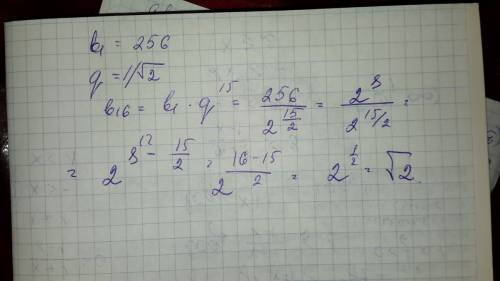 b₁ = 256
q = 1/√2
b₁₆ = b₁ · q¹⁵ = 256 / 2^(15/2) = 2⁸ / 2^(15/2) =
= 2^(8^(12) - 15/2) = 2^((16-15)/2) = 2^(1/2) = √2.